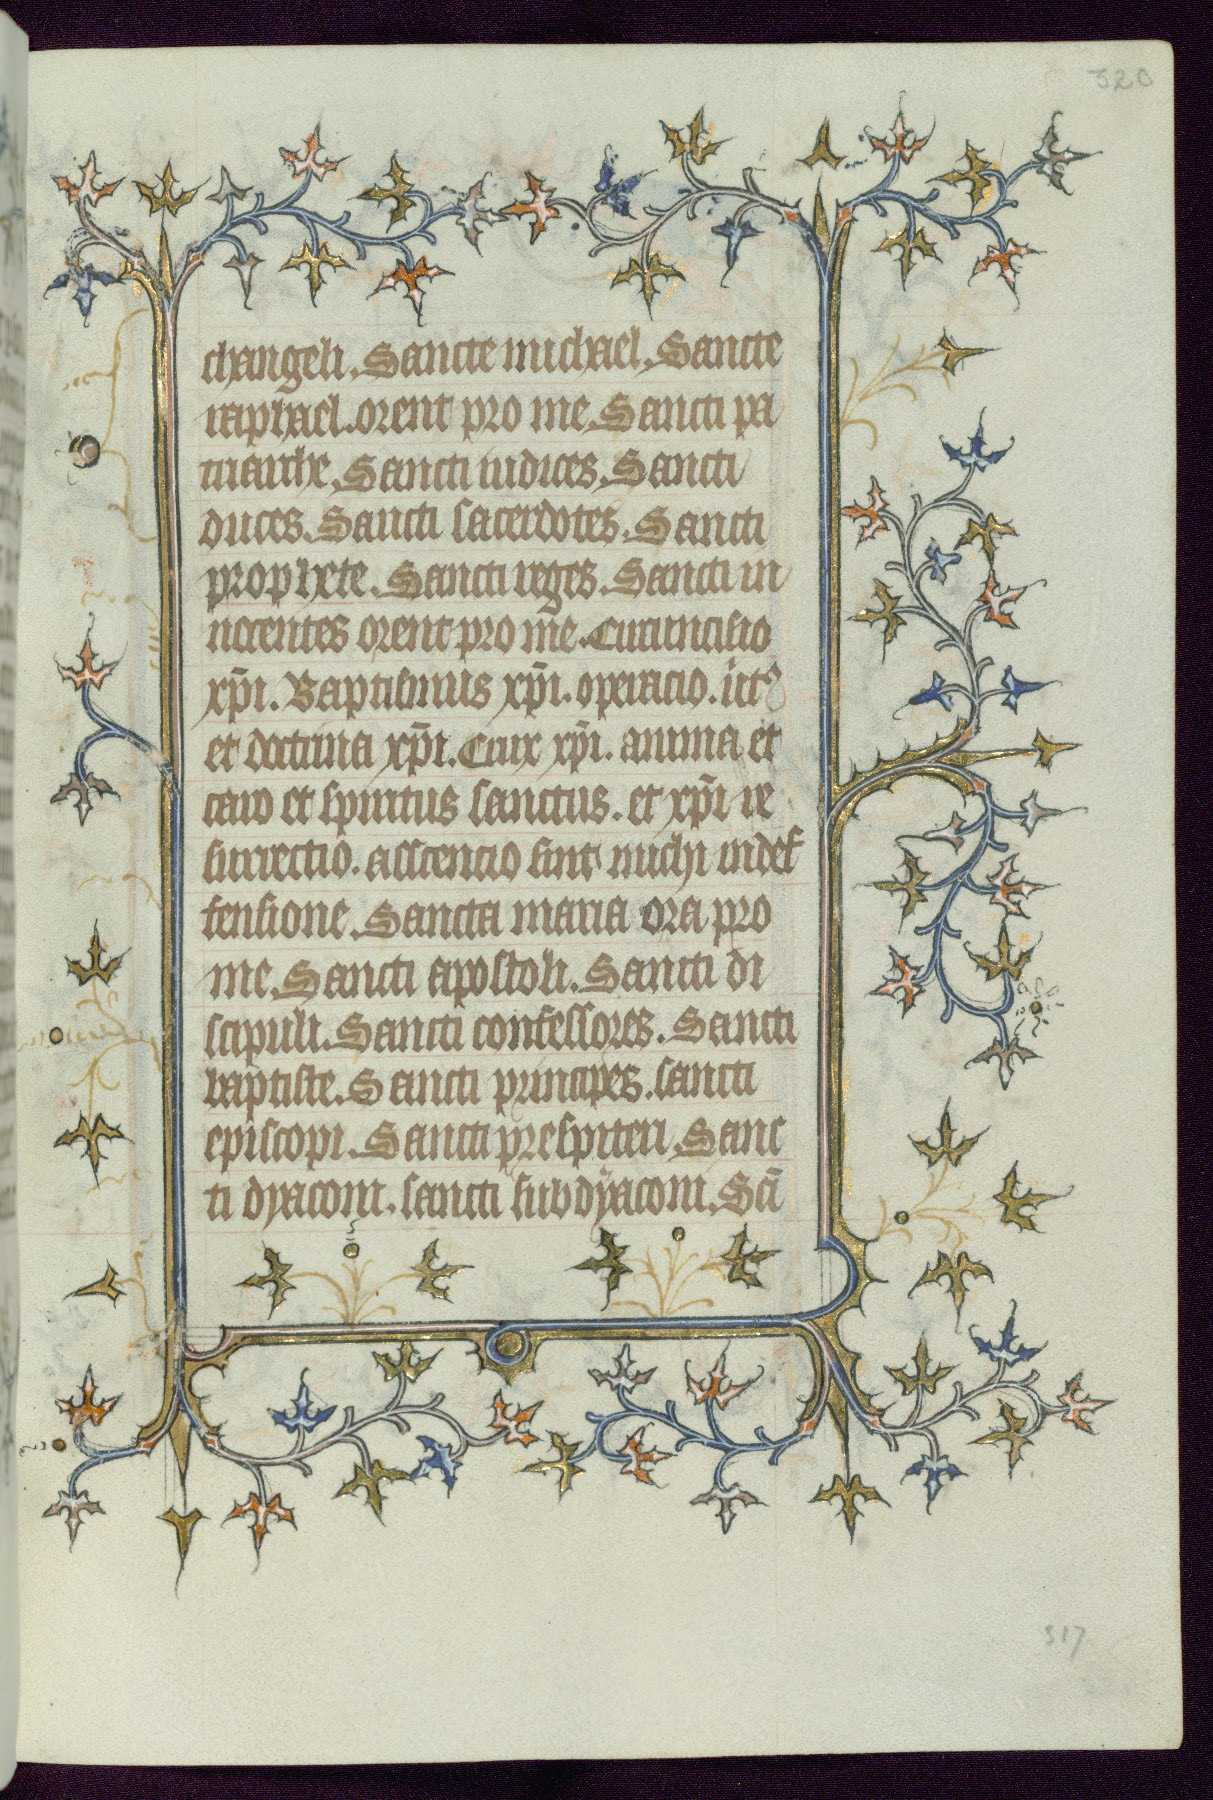 320
changeli. Sancte michael. Sancte
raphael. orent pro me. Sancti pa
triarche. Sancti iudices. Sancti
duces. Sancti sacerdotes. Sancti
prophete. Sancti reges. Sancti in
nocentes orent pro me. Circuncisio
xp̄i. Baptismus xp̄i. operacio.
et doctrina xp̄i. Crux xp̄i. anima et
caro et spiritus sanctus. et xp̄i re
surrectio. asscencio sint michi in def
fensione. Sancta maria ora pro
me. Sancti apostoli. Sancti di
scipuli. Sancti confessores. Sancti
baptiste. Sancti principes. sancti
episcopi. Sancti prespiteri. Sanc
ti dyaconi. sancti subdyaconi. Sc̄i
317